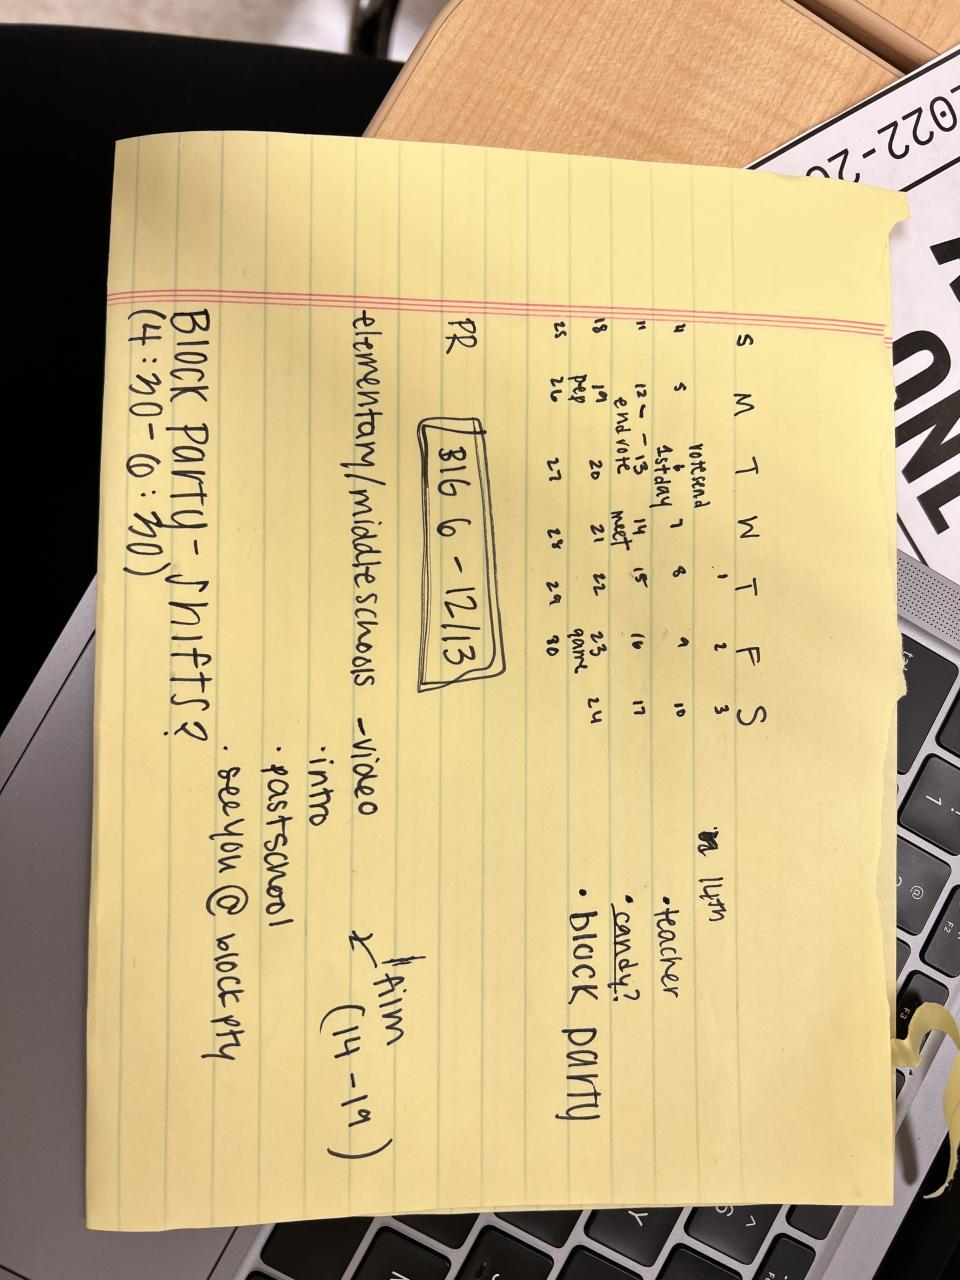 S M T W T F S
1 2 3
votesend
4 5 6 7 8 9 10
1st day
11 12 - - 13 14 15 16 17
end vote meet
18 19 20 21 22 23 24
pep game
25 26 27 28 29 30
14th
• teacher
• candy?
• block party
PR BIG 6 - 12/13
elementary/middle schools - video
film
(14 - 19)
• intro
• past school
• see you @ block pty
Block Party - Shifts?
(4:30 - 6:30)
2022-20
ONL